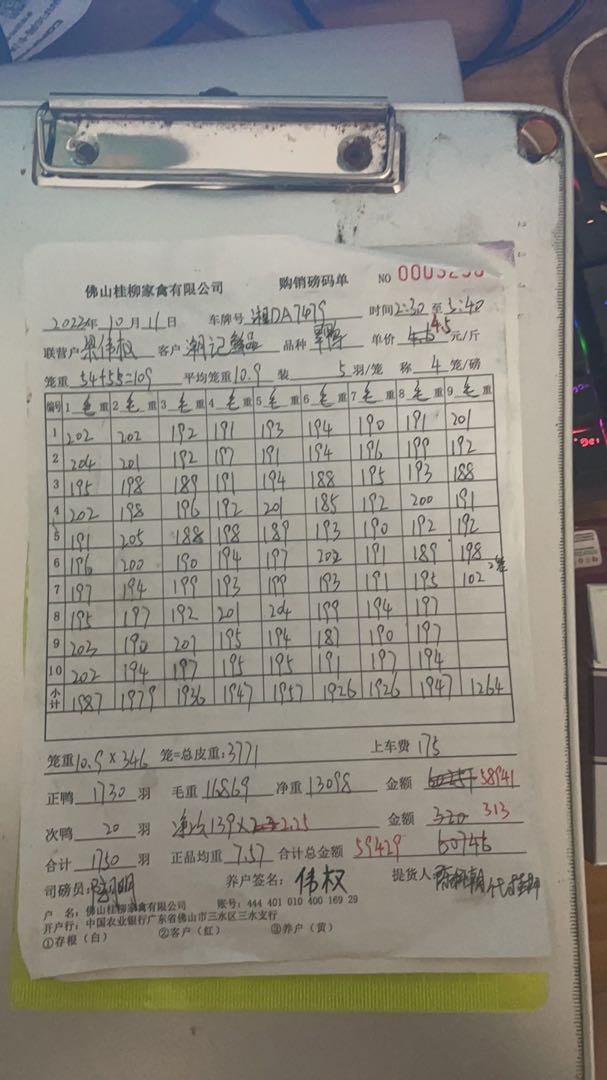 佛山桂柳家禽有限公司 购销磅码单 NO
2022年10月11日 车牌号 湘DA7479 时间2:30至3:40
联营户 梁伟权 客户 潮记 品种 单价 4.5 元/斤
笼重 54+55=109 平均笼重10.9 装 5 羽/笼 称 4 笼/磅
编号 1毛重 2毛重 3毛重 4毛重 5毛重 6毛重 7毛重 8毛重 9毛重
1 202 202 192 191 193 194 190 191 201
2 204 201 192 197 191 194 196 199 192
3 195 198 189 191 194 188 195 193 188
4 202 198 196 192 201 185 192 200 191
5 191 205 188 198 189 193 190 192 192
6 196 200 190 194 197 202 191 189 198
7 197 194 199 193 199 193 191 195 102 2笼
8 195 197 192 201 204 199 194 197
9 203 190 201 195 194 187 190 197
10 202 194 197 195 195 191 197 194
小计 1987 1979 1936 1947 1957 1926 1926 1947 1264
笼重10.9×346 笼=总皮重:3771 上车费 175
正鸭 1730 羽 毛重 16869 净重 13098 金额 58941
次鸭 20 羽 净次139× 2.25 金额 320 313
合计 1750 羽 正品均重 7.57 合计总金额 59429 60746
司磅员: 养户签名: 伟权 提货人
户 名: 佛山桂柳家禽有限公司 账号: 444 401 010 400 169 29
开户行: 中国农业银行广东省佛山市三水区三水支行
①存根(白) ②客户(红) ③养户(黄)